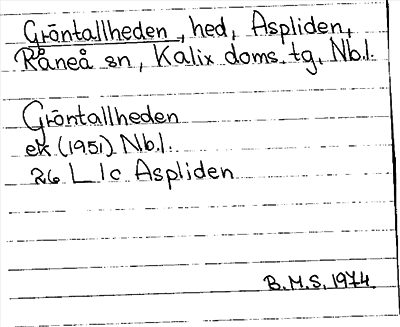 Gröntallheden, hed, Aspliden,
Råneå sn, Kalix doms. tg, Nb.l.
Gröntallheden
ek. (1951) Nb.l.
26 L 1 c Aspliden
B.M.S. 1974